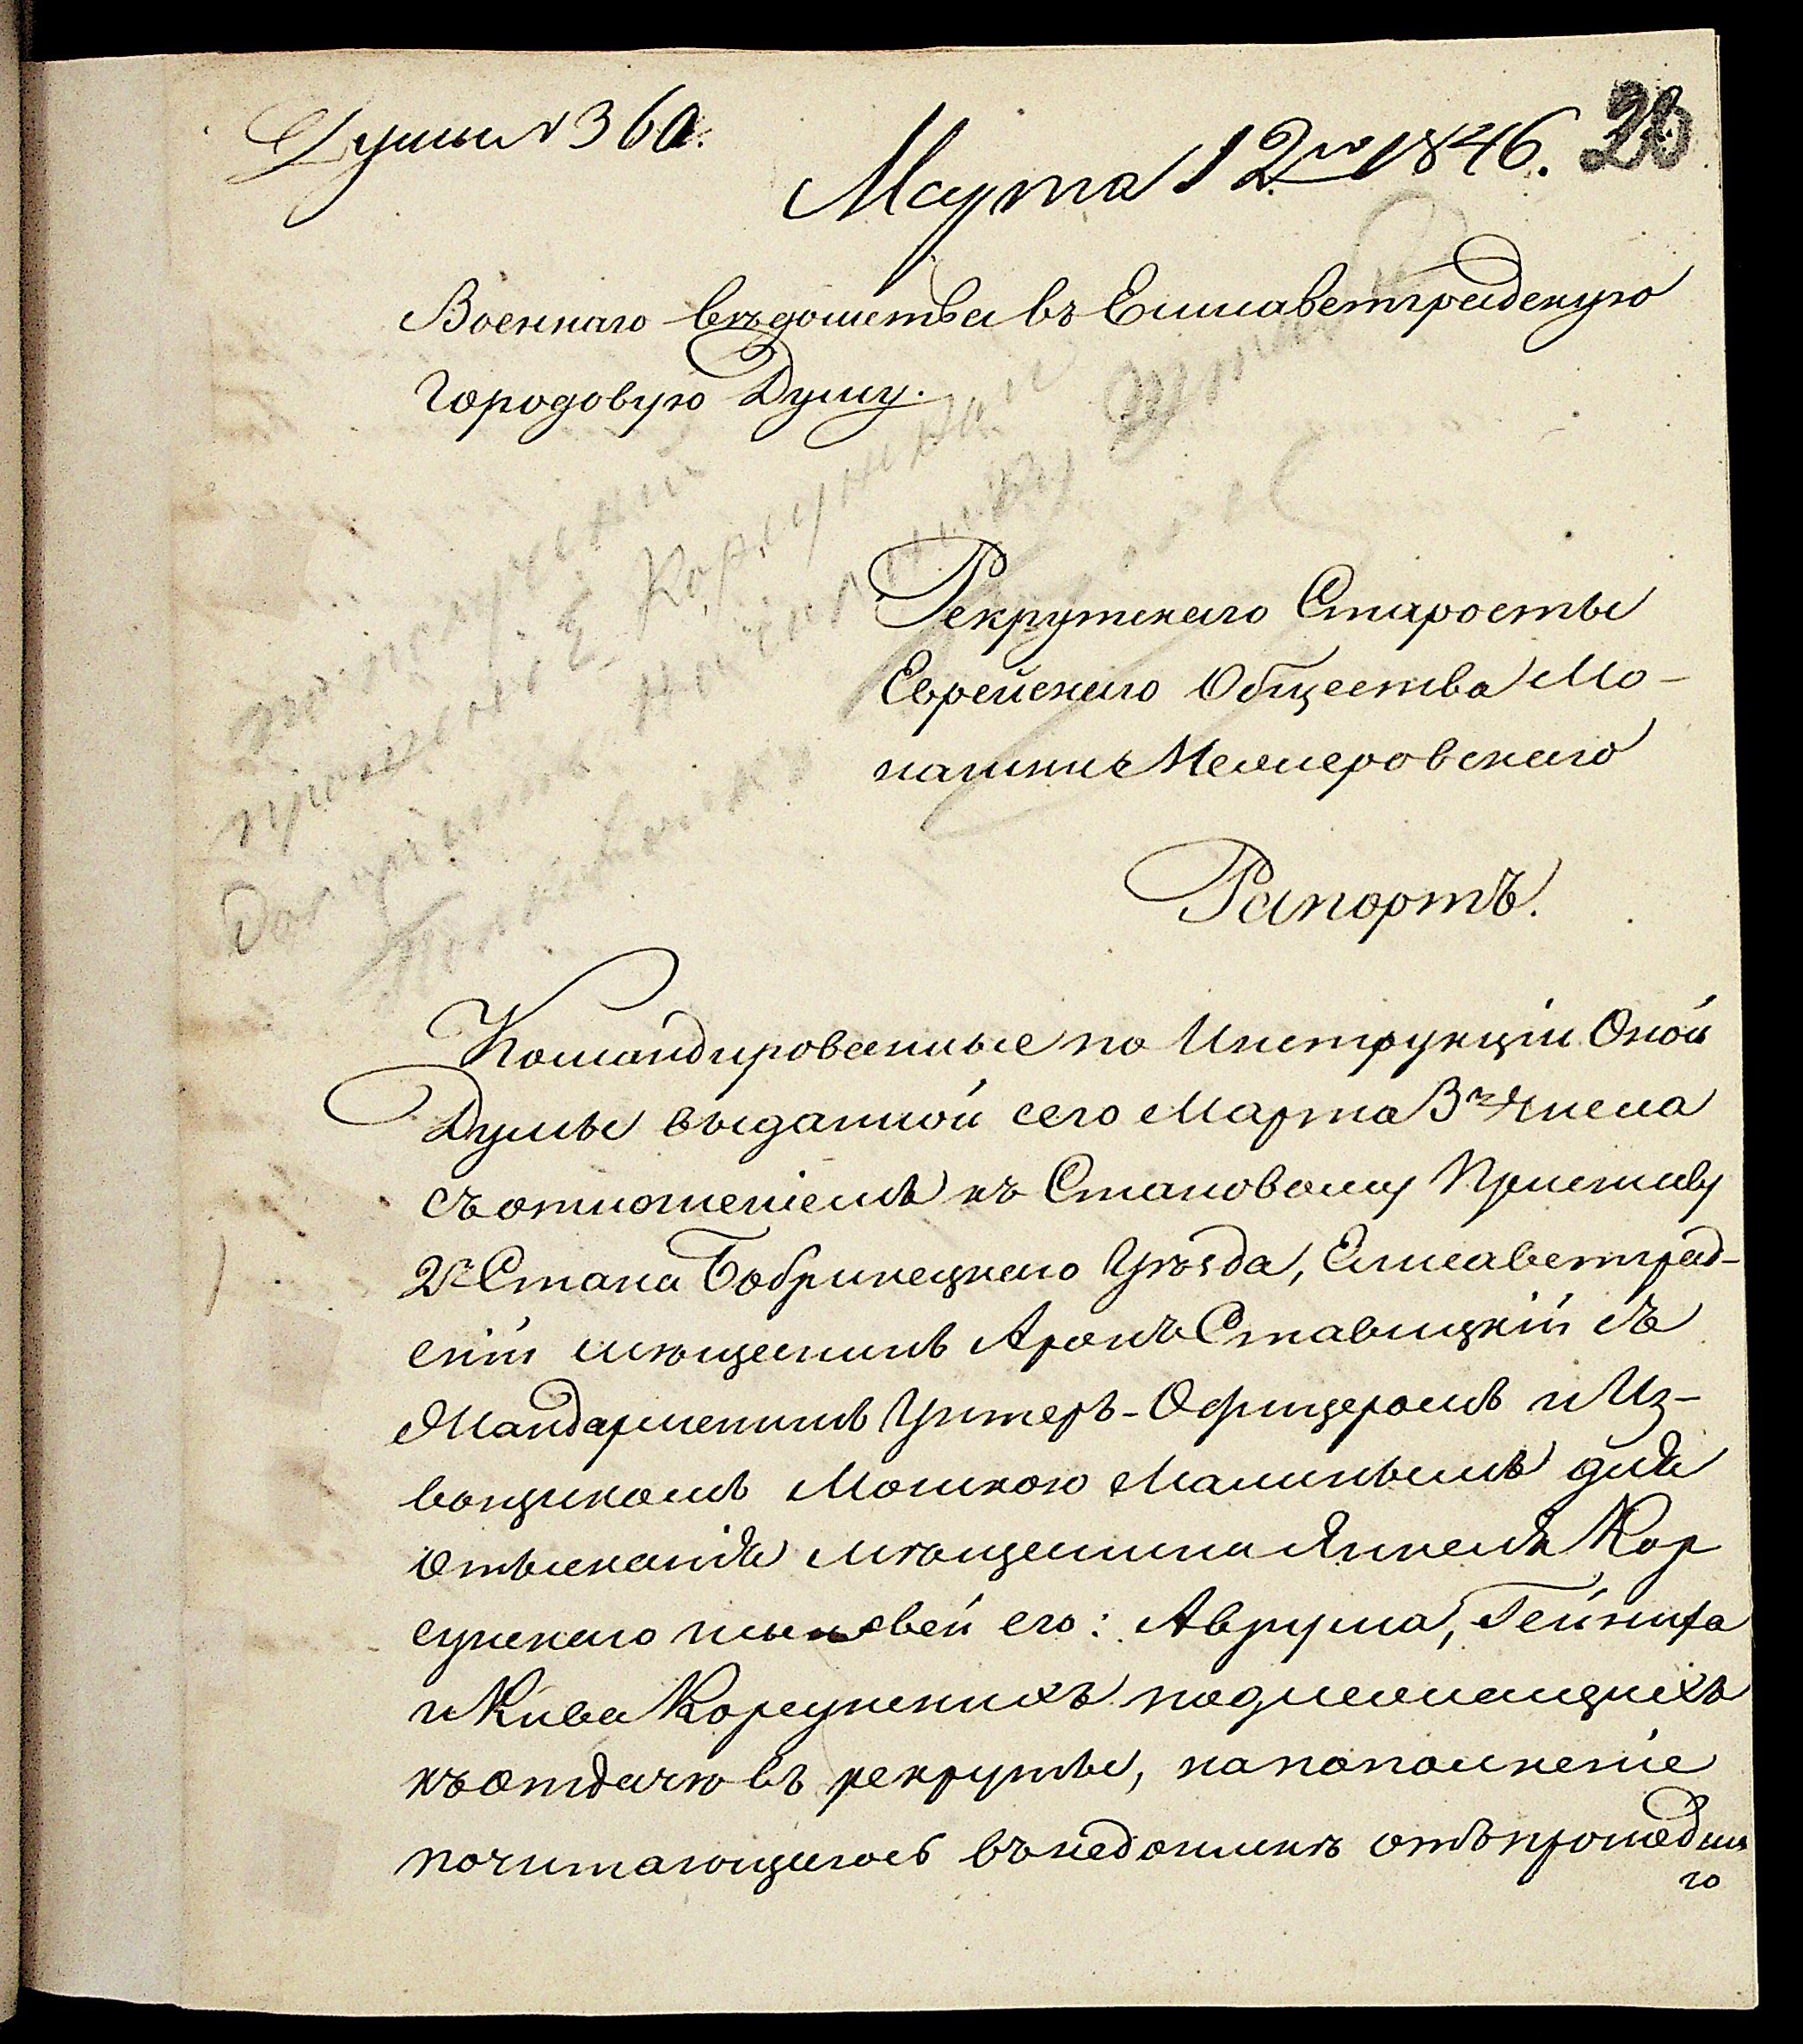 Думы № 360.
Марта 12го 1846.
Военнаго ведомства въ Елисаветградскую
Городовую Думу.
Рекрутскаго Старосты
Еврейскаго Общества Мо-
Рапортъ.
Командированные по Инструкціи Оной
Думы выданной сего Марта 3го числа
съ отношеніемъ къ Становому Приставу
2го Стана Бобринецкаго Уѣзда, Елисаветград-
скій мѣщанинъ Аронъ Ставицкій съ
Жандармскимъ Унтеръ-Офицеромъ и Из-
вощикомъ Мошкою для
отысканія мѣщанина Янкеля Кор
сунскаго и сыновей его: Аврума,
и Кива Корсунскихъ подлежащихъ
къ отдачѣ въ рекруты, на пополненіе
почитающихся въ недоимкѣ отъ прошедша
го